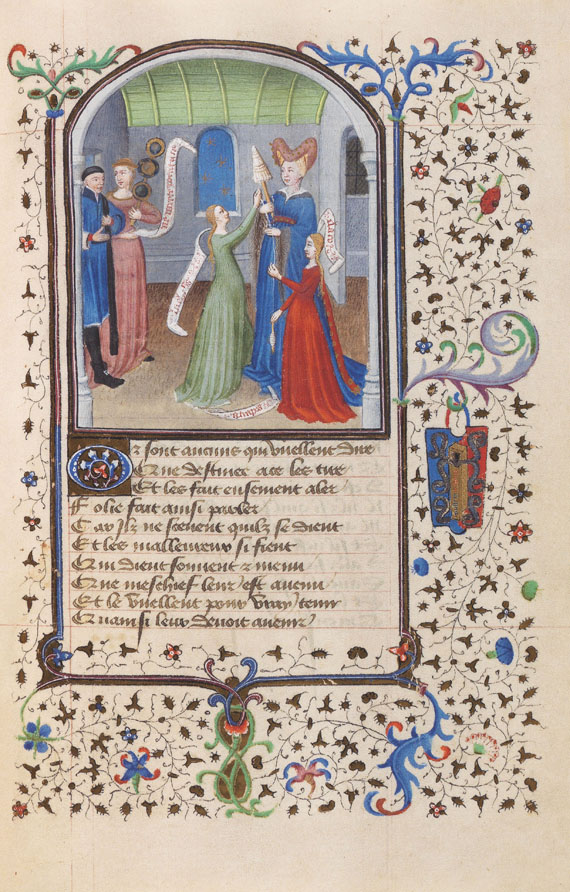 Atropos
Or sont aucuns qui vuellent dire
Que destinee ace les tire
Et les fait ensement aler
Folie fait ainsi parler
Car Ilz ne scevent quilz se dient
Et les malleureux si fient
Qui dient souvent & menu
Que meschief leur est avenu
Et le vuellent pour vray tenir
Quainsi leur devoit avenir